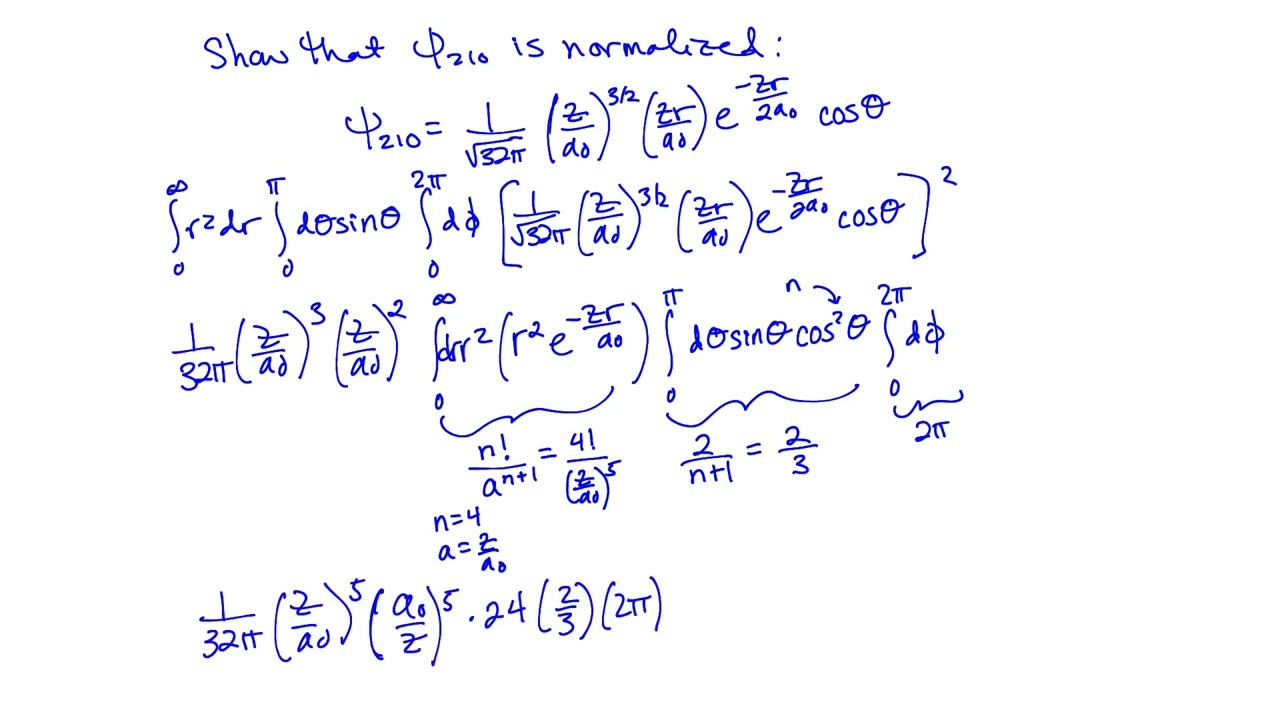 Show that ψ₂₁₀ is normalized:
ψ₂₁₀ = 1/√32π (Z/a₀)^3/2 (Zr/a₀) e^(-Zr/2a₀) cosθ
∫₀^∞ r² dr ∫₀^π dθ sinθ ∫₀^2π dϕ [1/√32π (Z/a₀)^3/2 (Zr/a₀) e^(-Zr/2a₀) cosθ]²
1/32π (Z/a₀)³ (Z/a₀)² ∫₀^∞ dr r² (r² e^(-Zr/a₀)) ∫₀^π dθ sinθ cos²θ ∫₀^2π dϕ
n
n!/a^(n+1) = 4!/(Z/a₀)⁵ 2/(n+1) = 2/3 2π
n=4
a = Z/a₀
1/32π (Z/a₀)⁵ (a₀/Z)⁵ · 24 (2/3) (2π)